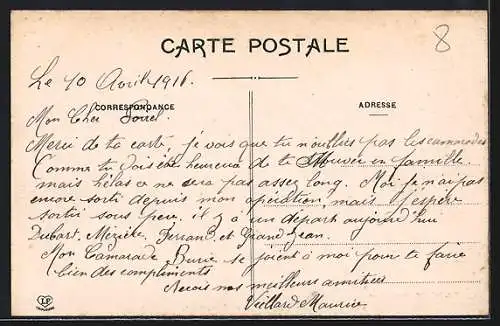 CARTE POSTALE
8
Le 10 Avril 1916.
CORRESPONDANCE
ADRESSE
Mon Cher
Merci de ta carte, je vois que tu n'oublies pas les camarades
Comme tu dois être heureux de te trouver en famille
mais hélas ce ne sera pas assez long. Moi je n'ai pas
encore sorti depuis mon opération, mais j'espère
sortir sous peu, il y a un départ aujourd'hui
Dubart, Mézière, Ferrand, et Grand Jean.
Mon Camarade se joient à moi pour te faire
bien des compliments
Reçois nos meilleurs amitiées
Vieillard Maurice
LP